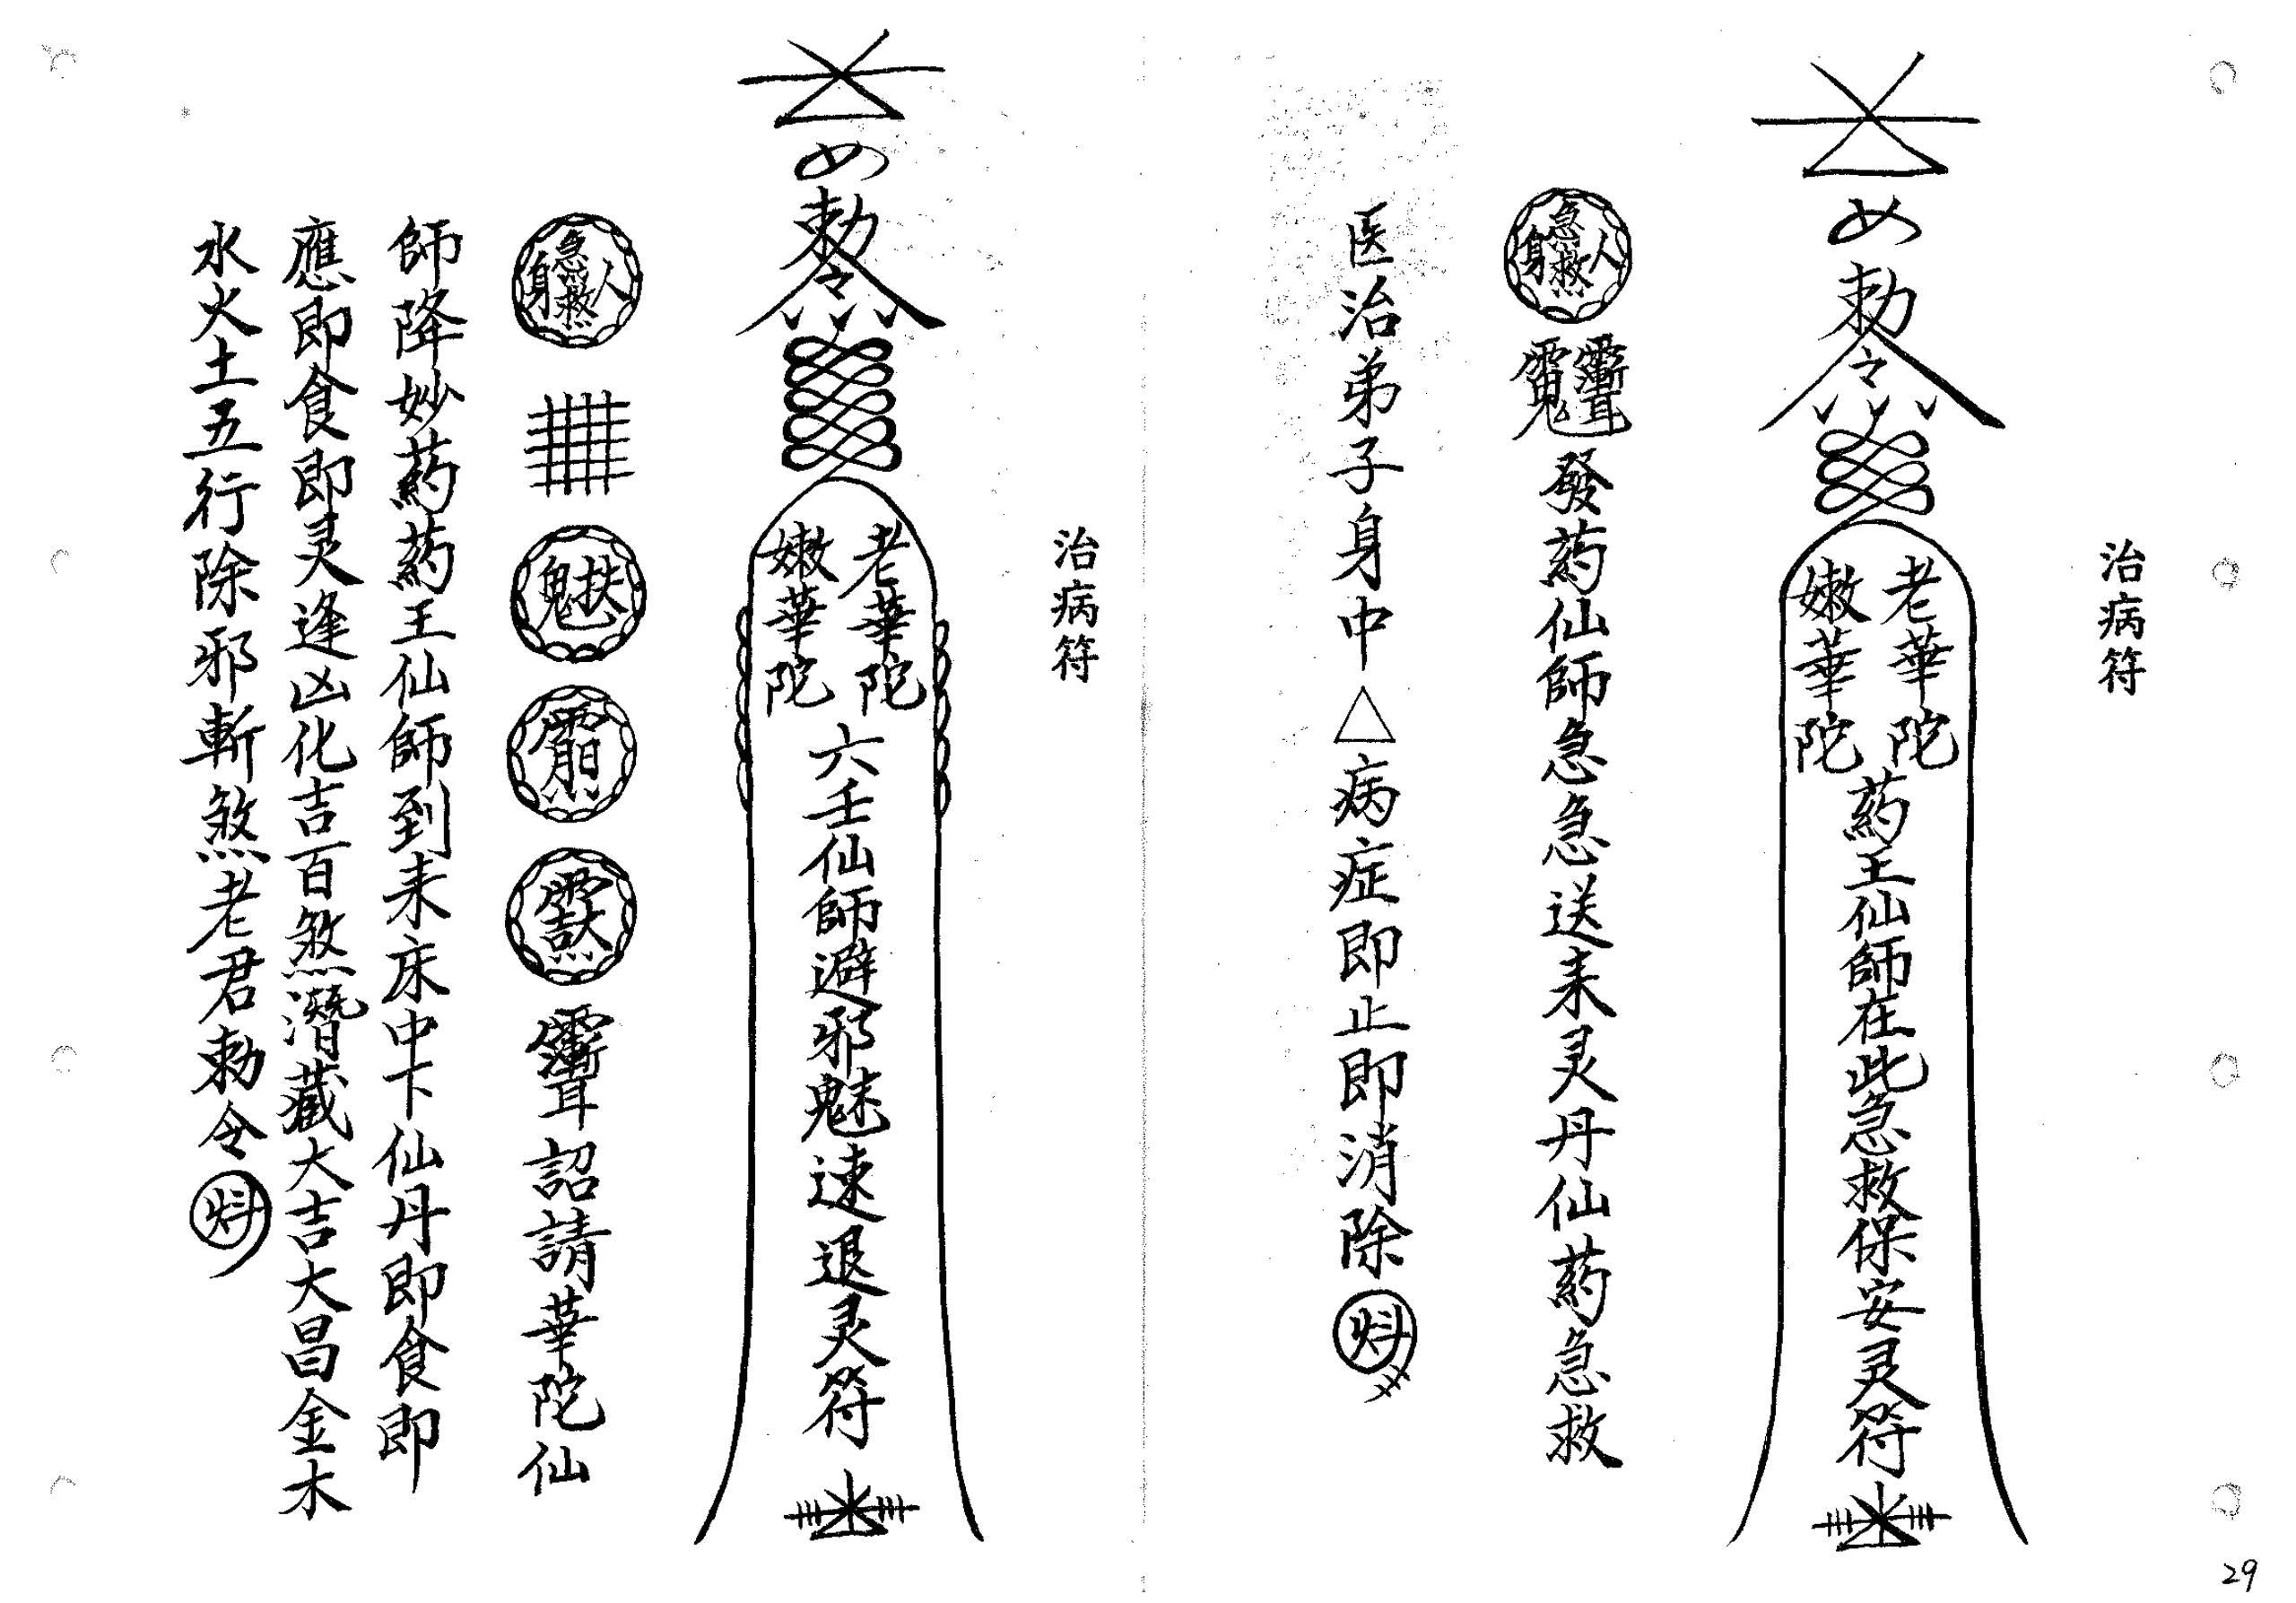 治病符
勅令
老華陀
嫩華陀
葯王仙師在此急救保安灵符
急救
人身
發葯仙師急急送来灵丹仙葯急救
医治弟子身中△病症即止即消除
治病符
勅令
老華陀
嫩華陀
六壬仙師避邪魅速退灵符
急救
人身
詔請華陀仙
師降妙葯葯王仙師到来床中下仙丹即食即
應即食即灵逢凶化吉百煞潛藏大吉大昌金木
水火土五行除邪斬煞老君勅令
29